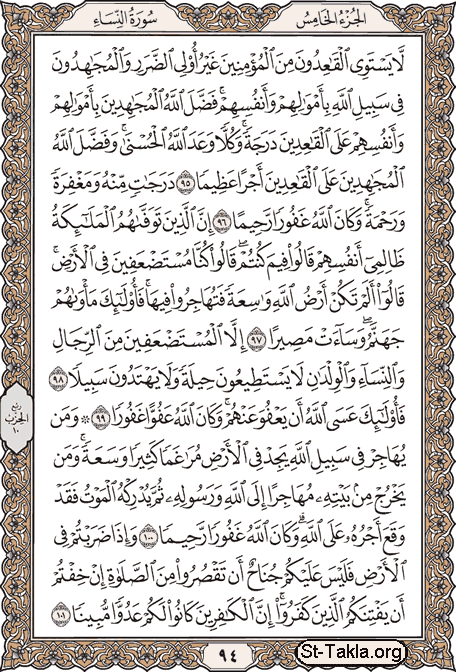 الجزء الخامس
سورة النساء
لَّا يَسْتَوِى ٱلْقَـٰعِدُونَ مِنَ ٱلْمُؤْمِنِينَ غَيْرُ أُو۟لِى ٱلضَّرَرِ وَٱلْمُجَـٰهِدُونَ
فِى سَبِيلِ ٱللَّهِ بِأَمْوَٰلِهِمْ وَأَنفُسِهِمْ ۚ فَضَّلَ ٱللَّهُ ٱلْمُجَـٰهِدِينَ بِأَمْوَٰلِهِمْ
وَأَنفُسِهِمْ عَلَى ٱلْقَـٰعِدِينَ دَرَجَةً ۚ وَكُلًّا وَعَدَ ٱللَّهُ ٱلْحُسْنَىٰ ۚ وَفَضَّلَ ٱللَّهُ
ٱلْمُجَـٰهِدِينَ عَلَى ٱلْقَـٰعِدِينَ أَجْرًا عَظِيمًا ٩٥ دَرَجَـٰتٍ مِّنْهُ وَمَغْفِرَةً
وَرَحْمَةً ۚ وَكَانَ ٱللَّهُ غَفُورًا رَّحِيمًا ٩٦ إِنَّ ٱلَّذِينَ تَوَفَّىٰهُمُ ٱلْمَلَـٰٓئِكَةُ
ظَالِمِىٓ أَنفُسِهِمْ قَالُوا۟ فِيمَ كُنتُمْ ۖ قَالُوا۟ كُنَّا مُسْتَضْعَفِينَ فِى ٱلْأَرْضِ ۚ
قَالُوٓا۟ أَلَمْ تَكُنْ أَرْضُ ٱللَّهِ وَٰسِعَةً فَتُهَاجِرُوا۟ فِيهَا ۚ فَأُو۟لَـٰٓئِكَ مَأْوَىٰهُمْ
جَهَنَّمُ ۖ وَسَآءَتْ مَصِيرًا ٩٧ إِلَّا ٱلْمُسْتَضْعَفِينَ مِنَ ٱلرِّجَالِ
وَٱلنِّسَآءِ وَٱلْوِلْدَٰنِ لَا يَسْتَطِيعُونَ حِيلَةً وَلَا يَهْتَدُونَ سَبِيلًا ٩٨
فَأُو۟لَـٰٓئِكَ عَسَى ٱللَّهُ أَن يَعْفُوَ عَنْهُمْ ۚ وَكَانَ ٱللَّهُ عَفُوًّا غَفُورًا ٩٩ ۞ وَمَن
يُهَاجِرْ فِى سَبِيلِ ٱللَّهِ يَجِدْ فِى ٱلْأَرْضِ مُرَٰغَمًا كَثِيرًا وَسَعَةً ۚ وَمَن
يَخْرُجْ مِنۢ بَيْتِهِۦ مُهَاجِرًا إِلَى ٱللَّهِ وَرَسُولِهِۦ ثُمَّ يُدْرِكْهُ ٱلْمَوْتُ فَقَدْ
وَقَعَ أَجْرُهُۥ عَلَى ٱللَّهِ ۗ وَكَانَ ٱللَّهُ غَفُورًا رَّحِيمًا ١٠٠ وَإِذَا ضَرَبْتُمْ فِى
ٱلْأَرْضِ فَلَيْسَ عَلَيْكُمْ جُنَاحٌ أَن تَقْصُرُوا۟ مِنَ ٱلصَّلَوٰةِ إِنْ خِفْتُمْ
أَن يَفْتِنَكُمُ ٱلَّذِينَ كَفَرُوٓا۟ ۚ إِنَّ ٱلْكَـٰفِرِينَ كَانُوا۟ لَكُمْ عَدُوًّا مُّبِينًا ١٠١
ربع
الحزب
١٠
٩٤
St-Takla.org